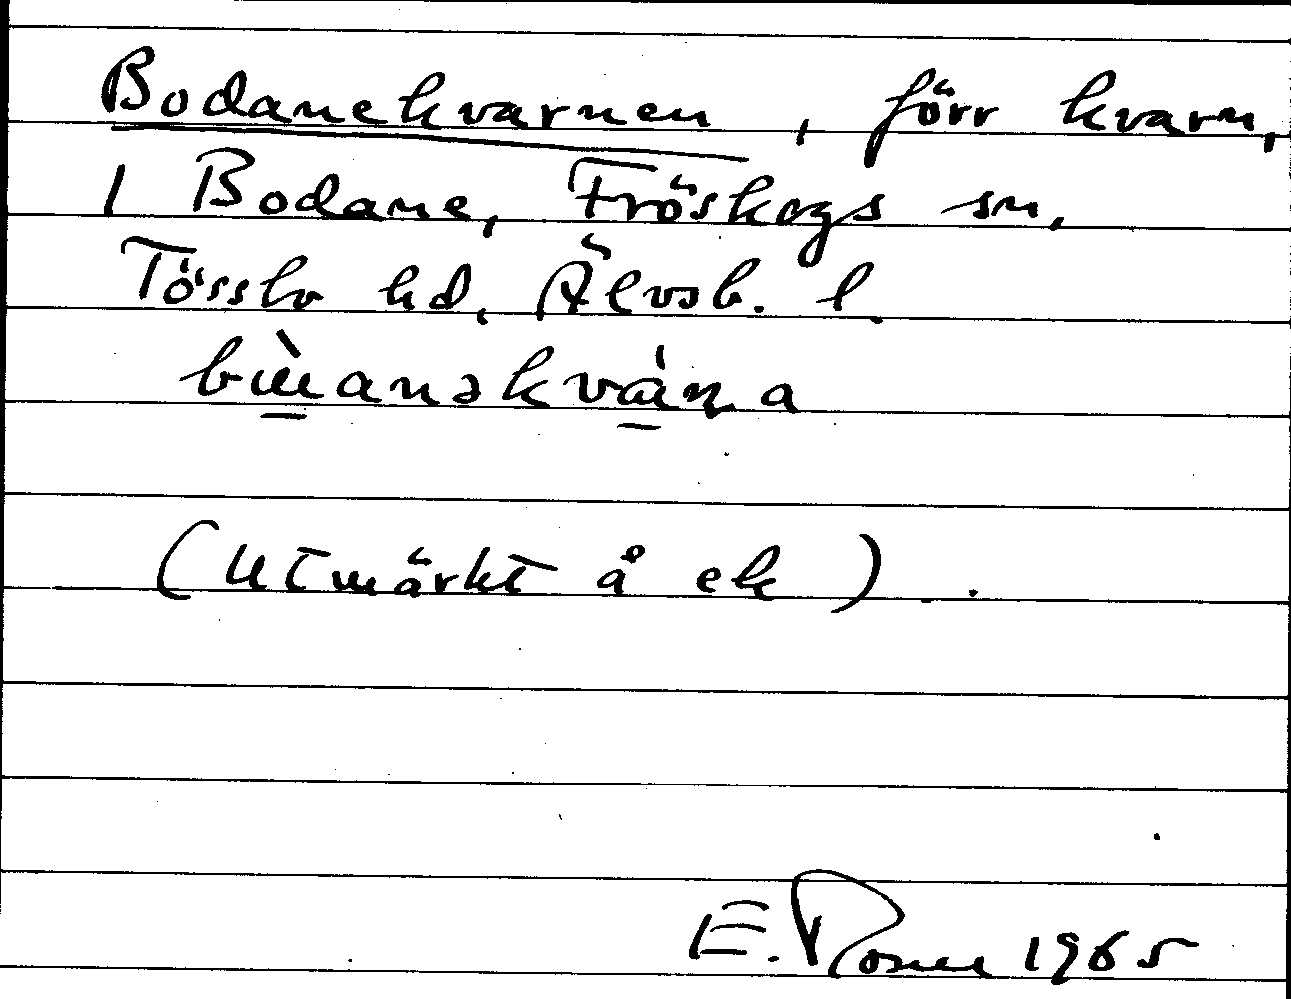 Bodanekvarnen, förr kvarn,
i Bodane, Fröskogs sn,
Tössbo hd, Älvsb. l.
(Utmärkt å ek).
E. Rosen 1965